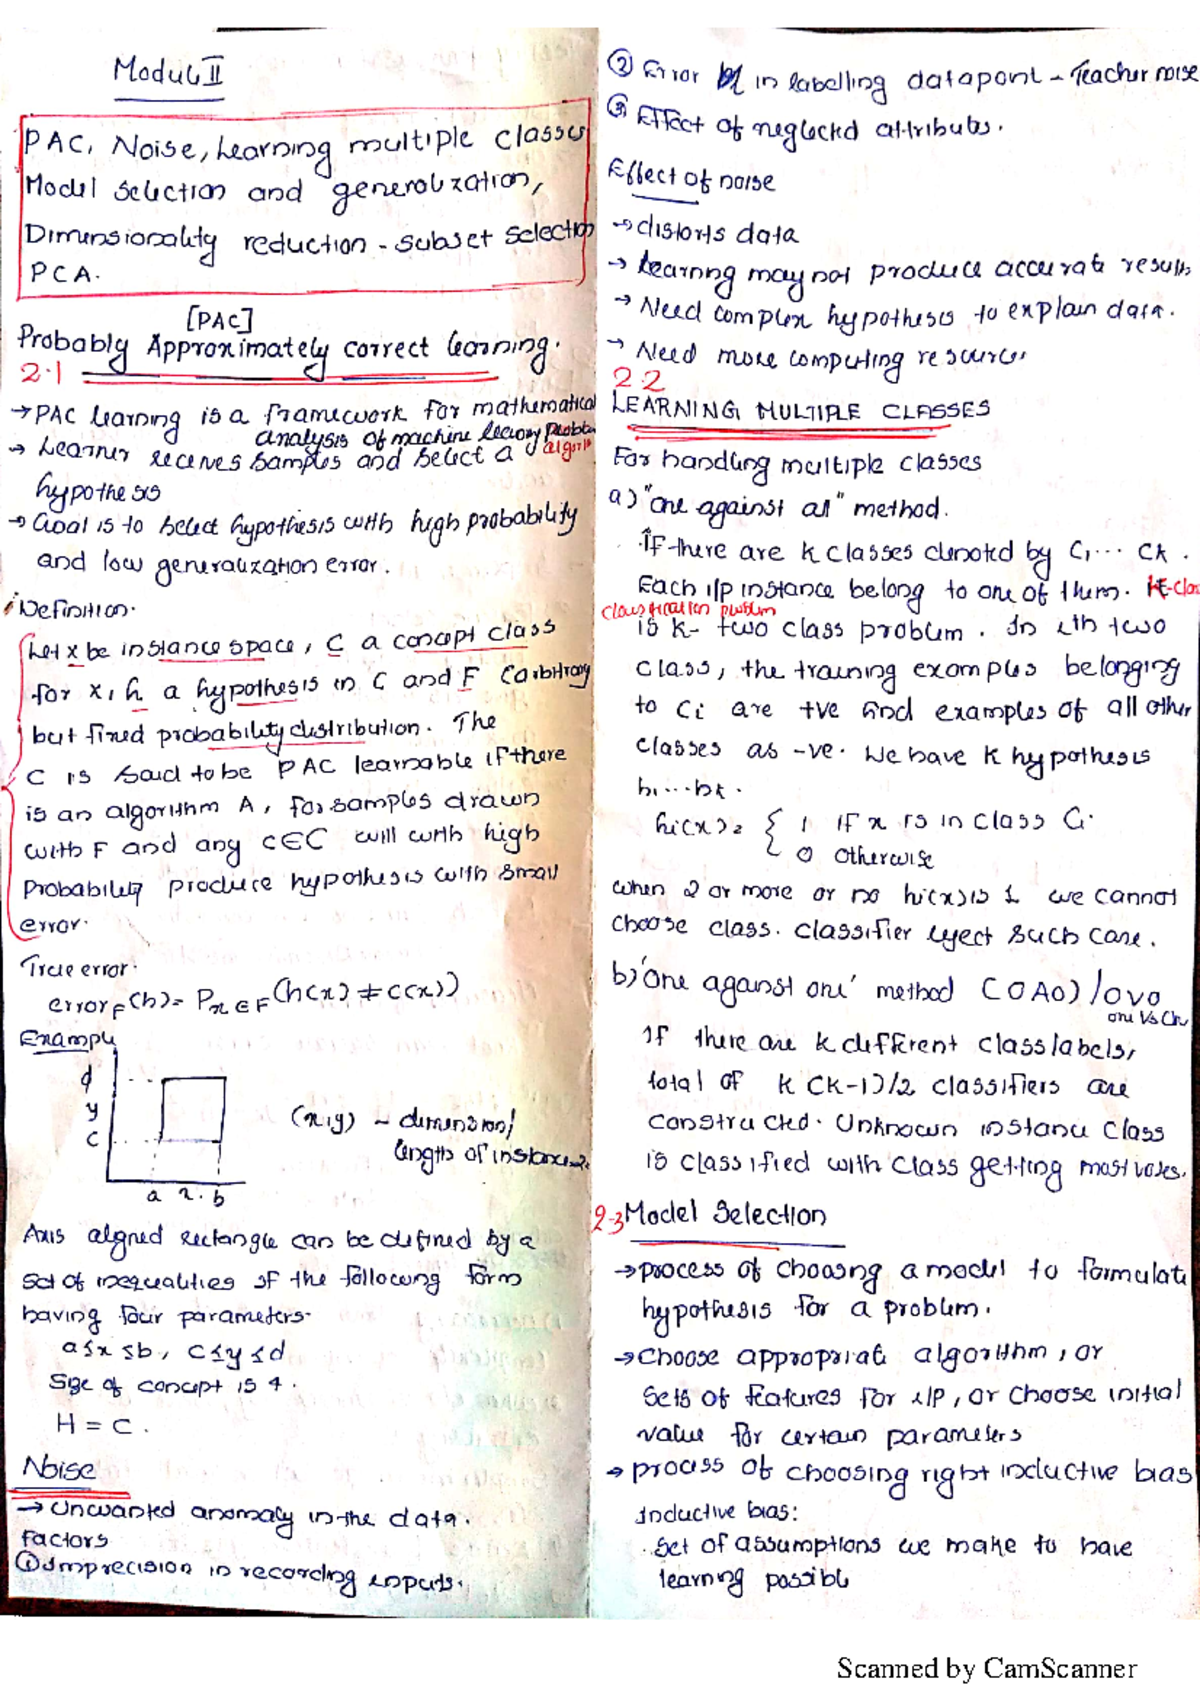 Modul II
PAC, Noise, Learning multiple classes
Model selection and generalization,
Dimensionality reduction - subset selection
PCA.
[PAC]
Probably Approximately correct learning.
2.1
→ PAC learning is a framework for mathematical
analysis of machine learning problem
→ Learner receives samples and select a
hypothesis
→ Goal is to select hypothesis with high probability
and low generalization error.
Definition.
Let x be instance space, C a concept class
for x, h a hypothesis in C and F (arbitrary
but fixed probability distribution. The
C is said to be PAC learnable if there
is an algorithm A, for samples drawn
with F and any c∈C will with high
probability produce hypothesis with small
error.
True error.
error_F(h) = P_x∈F (h(x) ≠ c(x))
Example
d
y
c
a x. b
(x,y) - dimension/
length of instance.
Axis aligned rectangle can be defined by a
set of inequalities of the following form
having four parameters.
a≤x≤b, c≤y≤d
Size of concept is 4.
H = C.
Noise
→ Unwanted anomaly in the data.
factors
① Imprecision in recording inputs.
② Error in labelling datapoint - Teacher noise
③ Effect of neglected attributes.
Effect of noise
→ distorts data
→ Learning may not produce accurate results
→ Need complex hypothesis to explain data.
→ Need more computing resources
2.2
LEARNING MULTIPLE CLASSES
For handling multiple classes
a) "one against all" method.
If there are k classes denoted by C1... Ck.
Each i/p instance belong to one of them. K-clas
classification problem
is k- two class problem. In ith two
class, the training examples belonging
to Ci are +ve and examples of all other
classes as -ve. We have k hypothesis
h1...hk.
hi(x) = { 1 if x is in class Ci.
0 otherwise
when 2 or more or no hi(x) is 1 we cannot
choose class. classifier reject such case.
b) 'One against one' method (OAO) / OVO
If there are k different class labels,
total of k(k-1)/2 classifiers are
constructed. Unknown instance class
is classified with class getting most votes.
2.3 Model Selection
→ process of choosing a model to formulate
hypothesis for a problem.
→ choose appropriate algorithm, or
sets of features for i/p, or choose initial
value for certain parameters
→ process of choosing right inductive bias
inductive bias:
set of assumptions we make to have
learning possible
Scanned by CamScanner